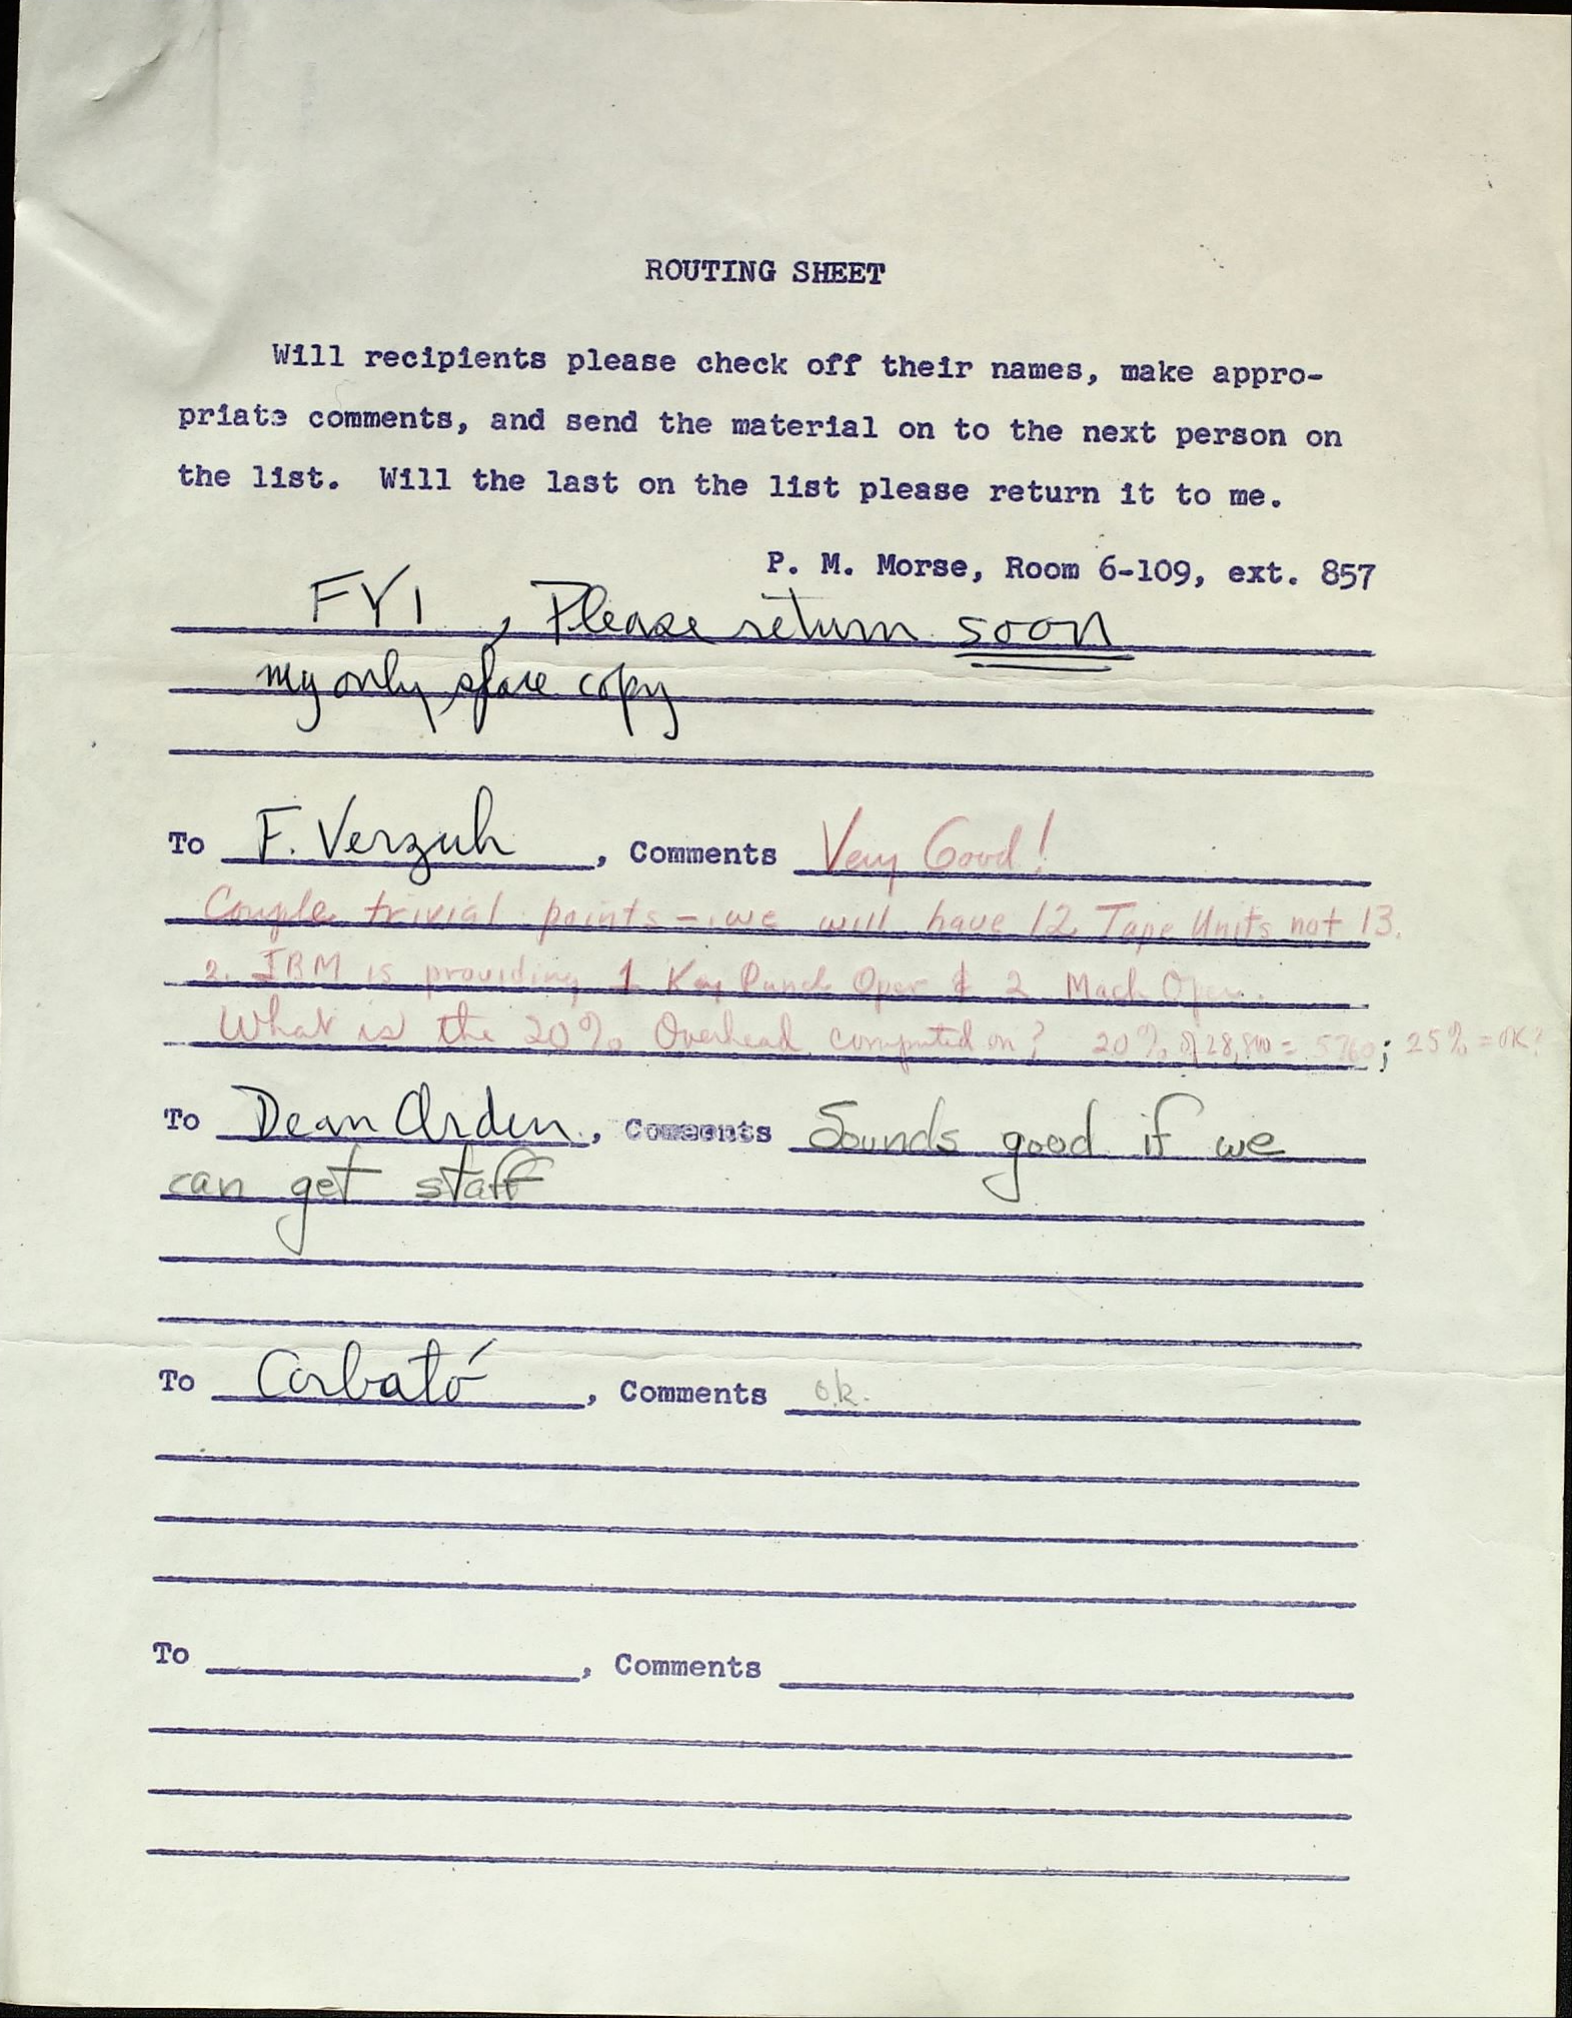 ROUTING SHEET
Will recipients please check off their names, make appro-
priate comments, and send the material on to the next person on
the list. Will the last on the list please return it to me.
P. M. Morse, Room 6-109, ext. 857
FYI, Please return soon
my only spare copy
To F. Verzuh, Comments Very Good!
Couple trivial points - we will have 12 Tape Units not 13.
2. IBM is providing 1 Key Punch Oper & 2 Mach Oper.
What is the 20% Overhead computed on? 20% of 28,800 = 5760; 25% = OK?
To Dean Arden, Comments Sounds good if we
can get staff
To Corbató, Comments o.k.
To , Comments